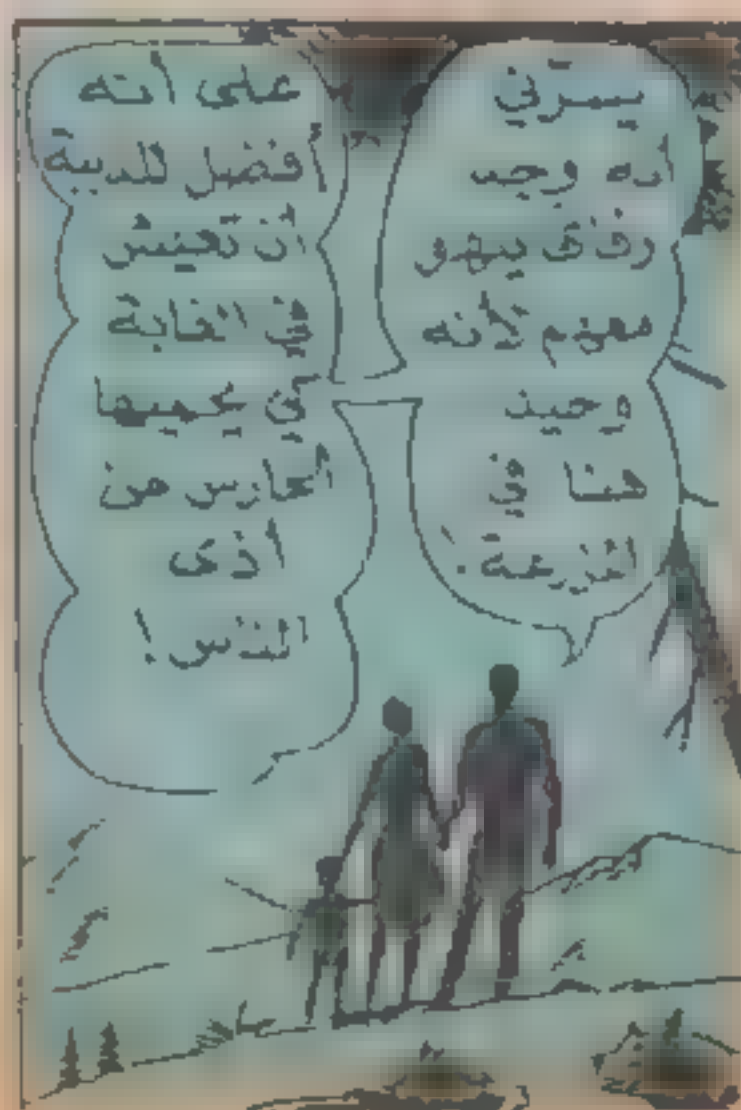 يسرّني
أنه وجد
رفاق يلهو
معهم لأنه
وحيد
هنا في
المزرعة!
على أنه
أفضل للدببة
أن تعيش
في الغابة
كي يحميها
الحارس من
أذى
الناس!